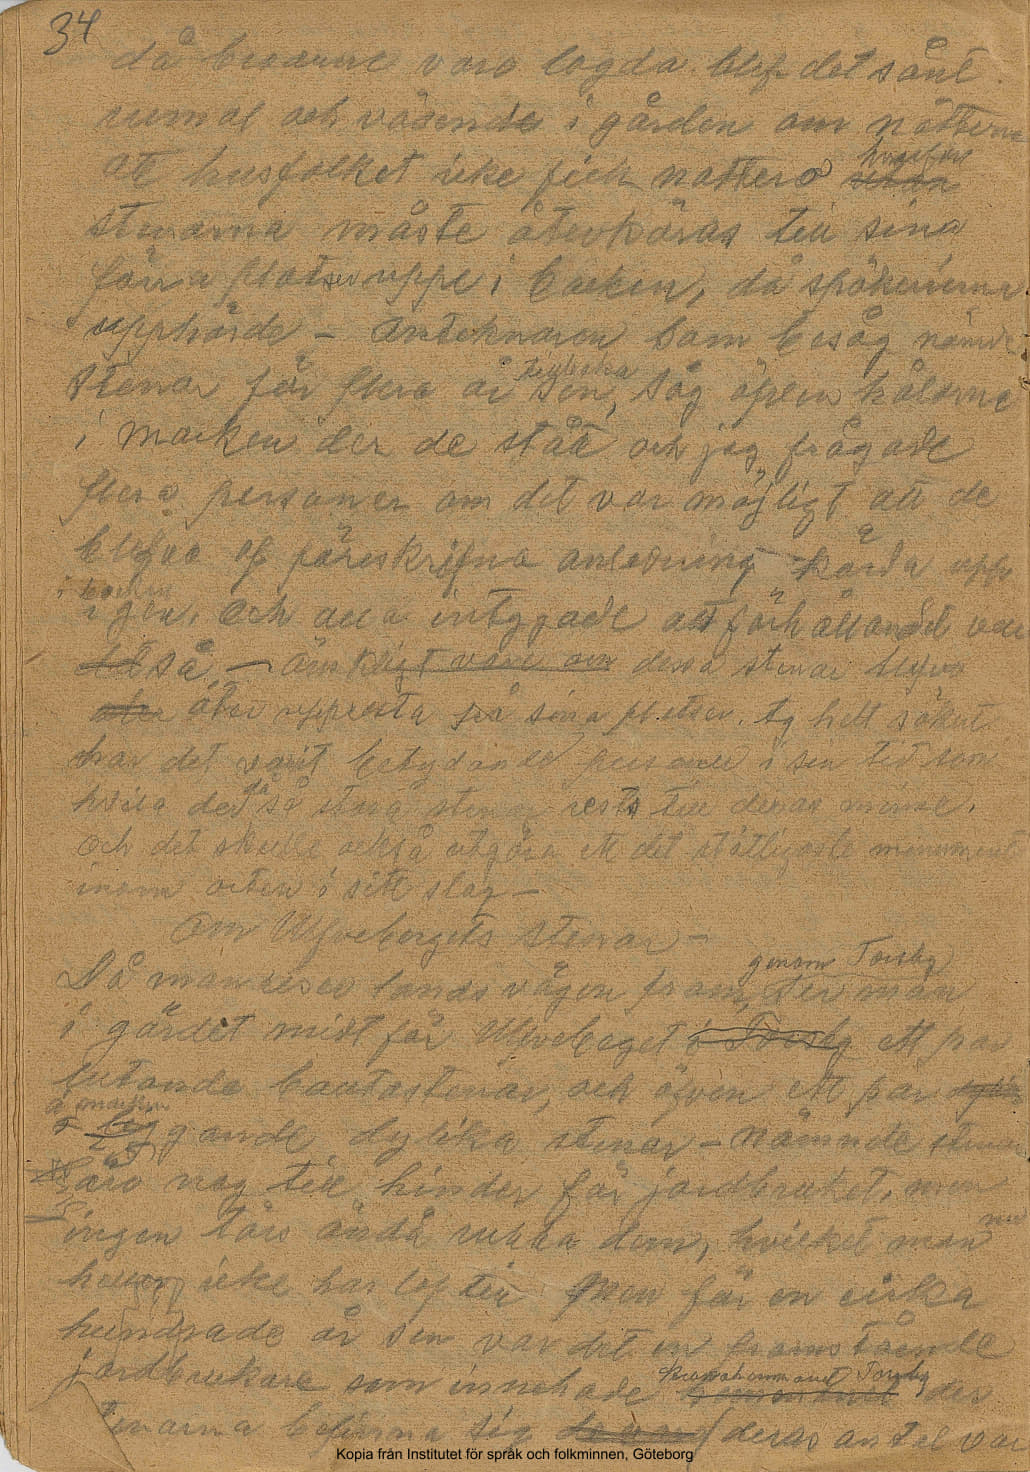 34
då broarne voro lagda blef det sånt
rummel och väsende i gården om nätterna
att husfolket icke fick nattero hvarför
stenarna måste återköras till sina
förra platser uppe i backen, då spökerierna
upphörde – Antecknaren som besåg nämnde
stenar för flera år sen, tydliga såg äfven hålorne
i marken der de stått och jag frågade
flera personer om det var möjligt att de
blefvo af föreskrifna anledning körda upp
i backen igen. Och alla intygade att förhållandet var
så – dessa stenar blefvo
åter uppresta på sina platser. Ty helt säkert
har det varit betydande personer i sin tid som
hvila der då så stora stenar rests till deras minne.
och det skulle också utgöra ett det ståtligaste monument
inom orten i sitt slag –
Om Ulfvebergets stenar –
Då man reser landsvägen fram genom Torsby, ser man
i gärdet midt för Ulfveberget i Torsby ett par
lutande bautastenar, och äfven ett par
å marken liggande dylika stenar – Nämnde stenar
äro nog till hinder för jordbruket, men
ingen törs ändå rubba dem, hvilket man nu
heller icke har lof till Men för en cirka
hundrade år sen var det en framstående
jordbrukare som innehade Torsby der
stenarna befinna sig deras antel var
Kopia från Institutet för språk och folkminnen, Göteborg